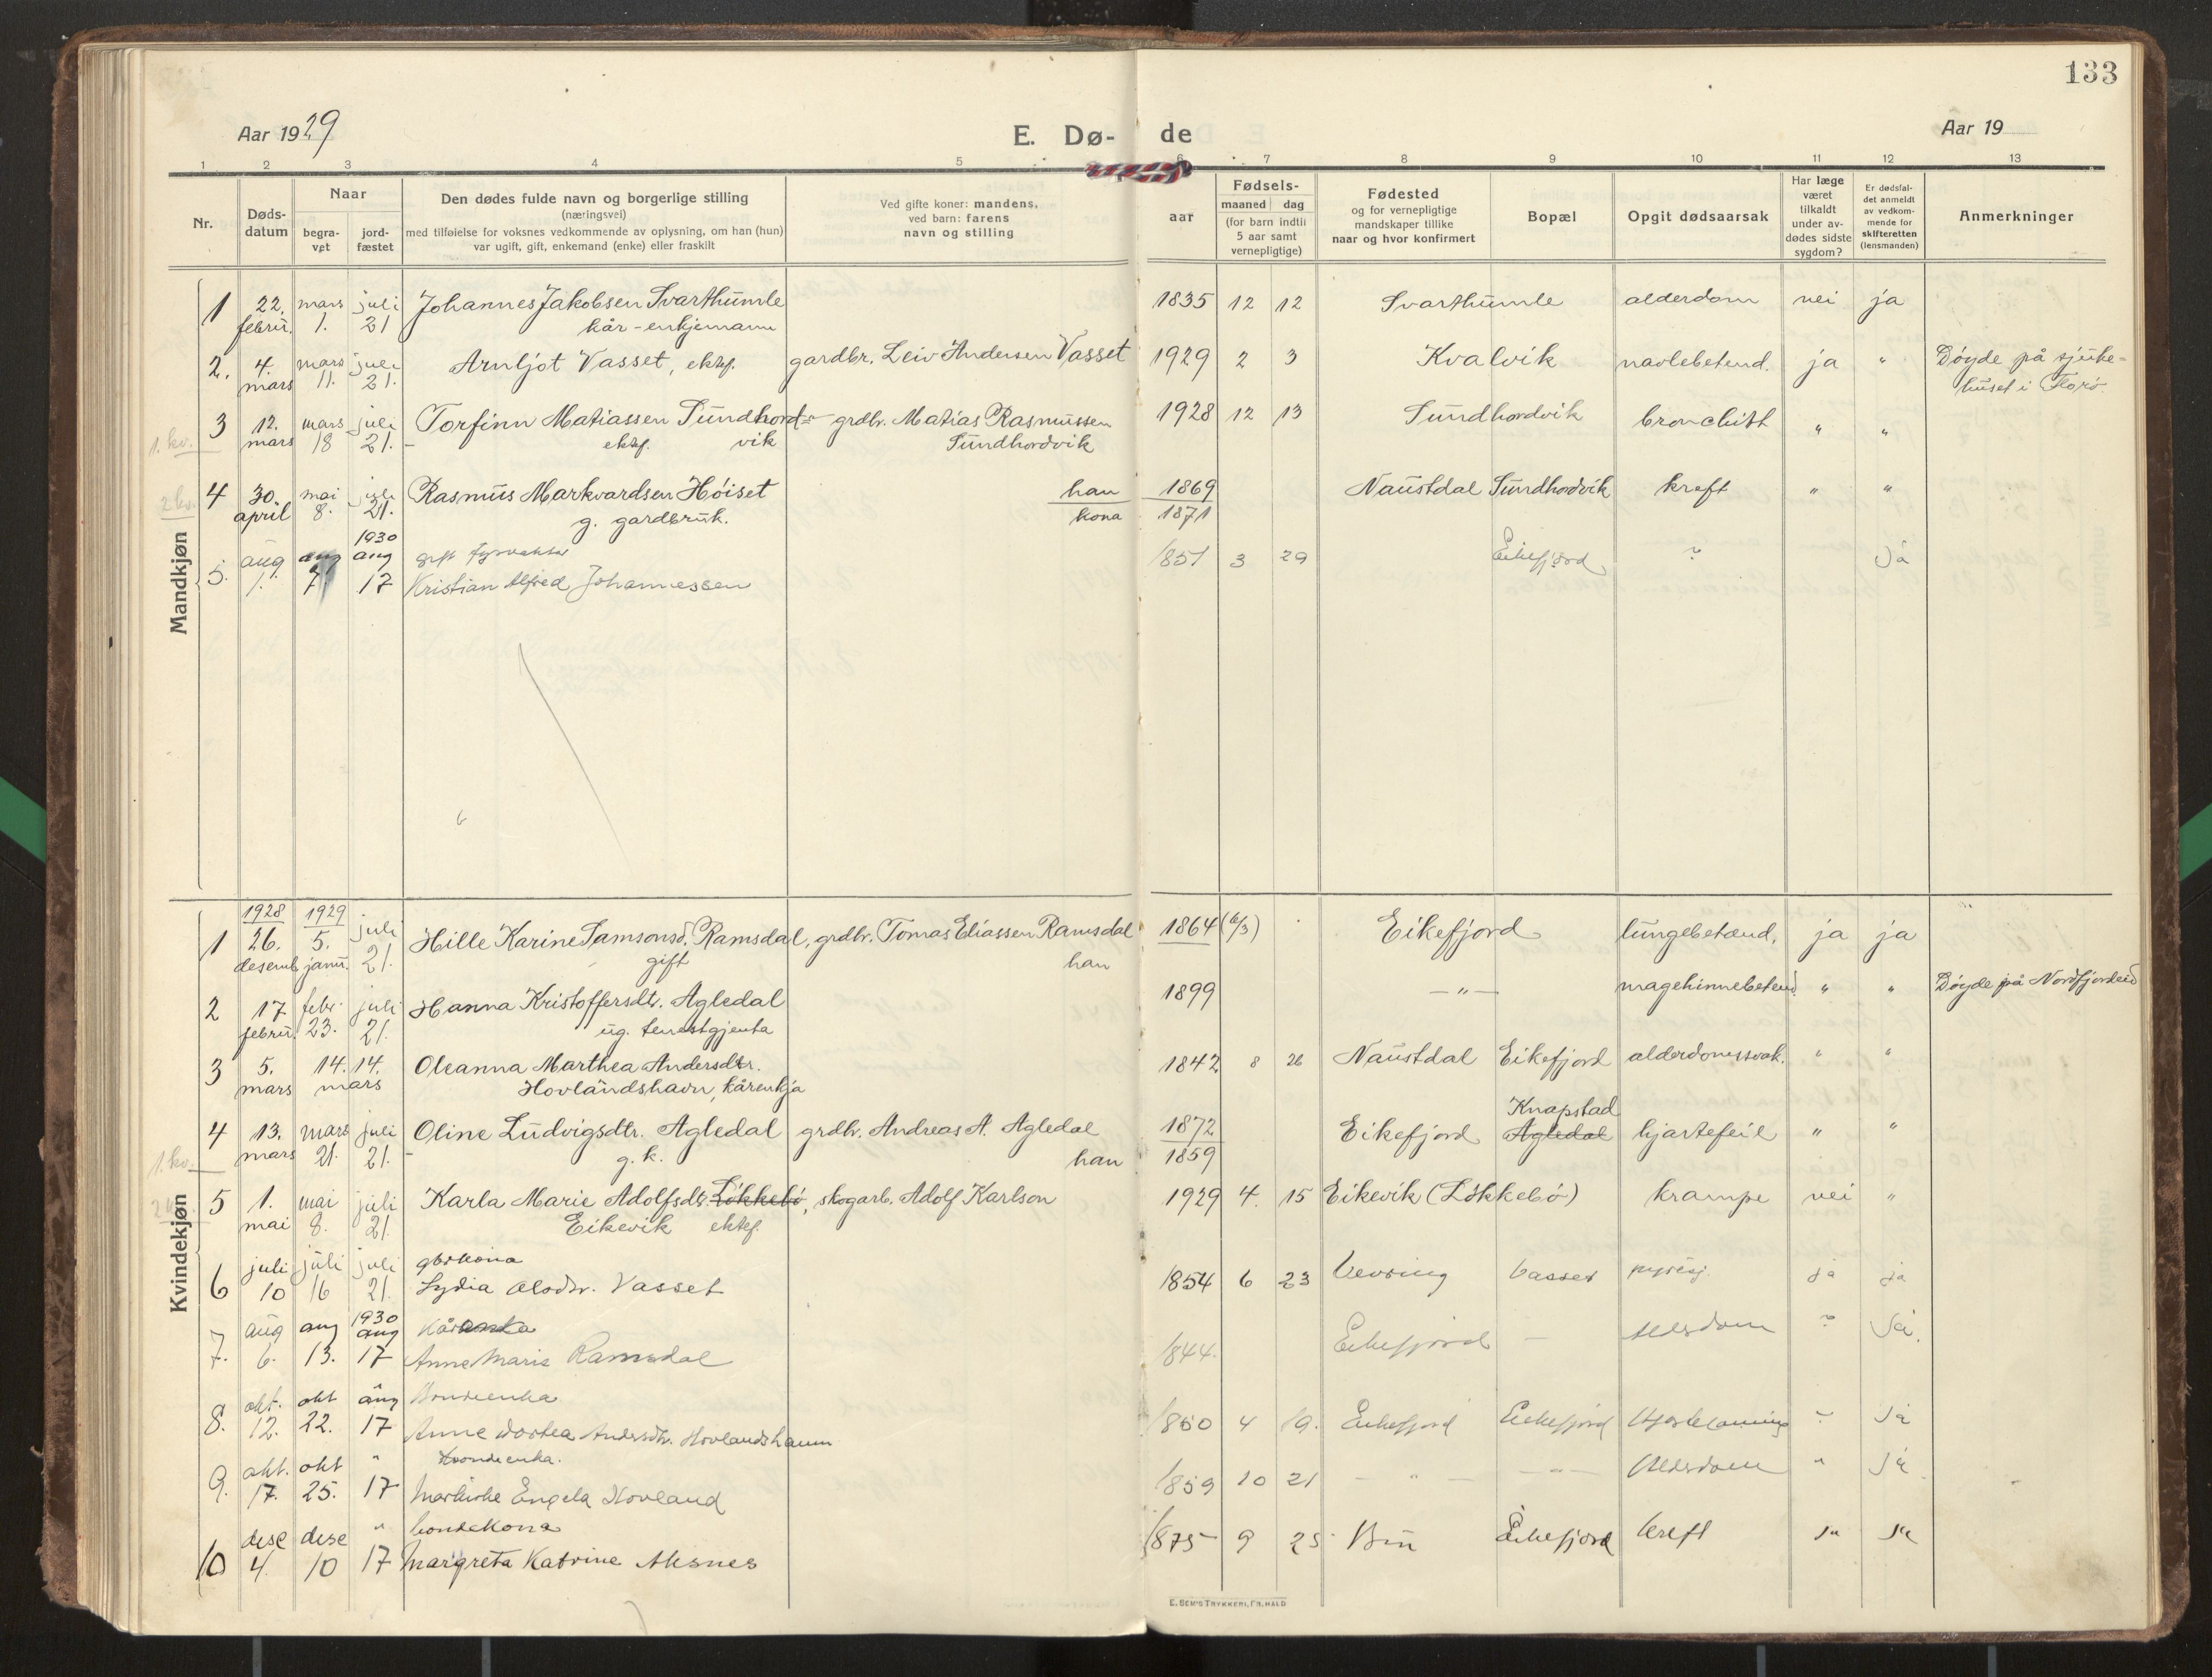 133
Aar 1929
E. Dø- de
Aar 19
1 2 3 4 5 6 7 8 9 10 11 12 13
Nr.
Døds-
datum
Naar
begra-
vet
jord-
fæstet
Den dødes fulde navn og borgerlige stilling
(næringsvei)
med tilføielse for voksnes vedkommende av oplysning, om han (hun)
var ugift, gift, enkemand (enke) eller fraskilt
Ved gifte koner: mandens,
ved barn: farens
navn og stilling
Fødsels-
aar
maaned dag
(for barn indtil
5 aar samt
vernepligtige)
Fødested
og for vernepligtige
mandskaper tillike
naar og hvor konfirmert
Bopæl
Opgit dødsaarsak
Har læge
været
tilkaldt
under av-
dødes sidste
sygdom?
Er dødsfal-
det anmeldt
av vedkom-
mende for
skifteretten
(lensmanden)
Anmerkninger
Mandkjøn
1 22. mars juli Johannes Jakobsen Svarthumle 1835 12 12 Svarthumle alderdom nei ja
febru. 1. 21 kår-enkjemann
2. 4. mars juli Arnljot Vasset, ektef. gardbr. Leiv Andersen Vasset 1929 2 3 Kvalvik navlebetend. ja " Döyde på sjuke-
mars 11. 21. huset i Florø
3 12. mars juli Torfinn Matiassen Sundhord- grdbr. Matias Rasmussen 1928 12 13 Sundhordvik bronchitt " "
1. kv. mars 18 21. ektef. vik Sundhordvik
4 30. mai juli Rasmus Markvardsen Höiset han 1869 Naustdal Sundhordvik kreft " "
2 kv. april 8. 21. g. gardbruk. kona 1871
1930
5. aug aug aug gift fyrvakter 1851 3 29 Eikefjord ? Ja
1. 7 17 Kristian Alfred Johannessen
6
Kvindekjøn
1928 1929
1 26. 5. juli Hille Karine Samsonsd. Ramsdal, grdbr. Tomas Eliassen Ramsdal 1864 (6/3) Eikefjord lungebetend. ja ja
desemb. janu. 21. gift han
2 17 febr. juli Hanna Kristoffersdtr. Agledal 1899 — " — magehinnebetend. " " Döyde på Nordfjordeid
febru. 23. 21. ug. tenestgjenta
3 5. 14. 14. Oleanna Marthea Andersdtr. 1842 8 26 Naustdal Eikefjord alderdomssvak. " "
mars mars Hovlandshavn, kårenkja
Knapstad
4 13. mars juli Oline Ludvigsdtr. Agledal grdbr. Andreas A. Agledal 1872 Eikefjord Agledal hjartefeil " "
1. kv. mars 21. 21. g. k. han 1859
5 1. mai juli Karla Marie Adolfsdtr. Lökkebö, skogarb. Adolf Karlson 1929 4. 15 Eikevik (Lökkebö) krampe nei "
mai 8. 21. Eikevik ektef.
juli juli juli gbrkona
6 10 16 21. Lydia Olsdtr. Vasset 1854 6 23 Vevring Vasset ja ja
1930
aug aug aug
7. 6. 13. 17 Anne Marie Ramsdal 1844. Eikefjord — Aldsdom ? Ja.
okt. okt aug Bondeenka
8. 12. 22. 17 Anne Dortea Andersdtr. Hovlandshamn 1850 4 19. Eikefjord Eikefjord Hjertelamning ? Ja
okt. okt " Bondeenka.
9. 17. 25. 17 Engela Hovland 1859 10 21 — " — — " — Aldersdom " Ja
dese dese " bondekona
10 4. 10 17 Margreta Katrine Aksnes 1875 9 25 Bru Eikefjord kreft Ja Ja
E. SEM'S TRYKKERI, FR.HALD